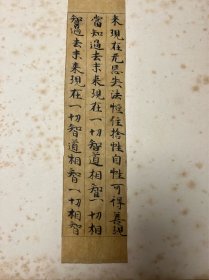 来現在无忘失法恒住捨性自性可得善現
當知過去未来現在一切智道相智一切相
智過去未来現在一切智道相智一切相智